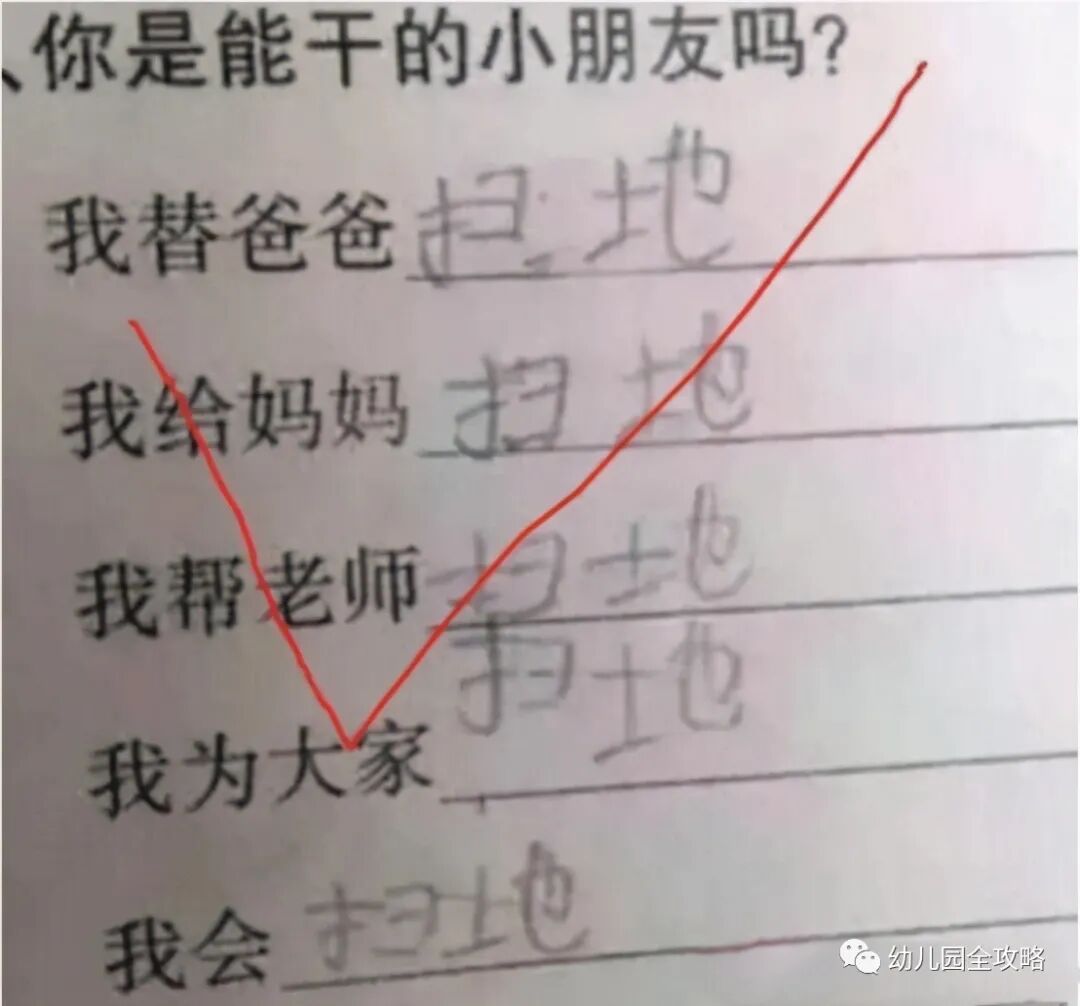 、你是能干的小朋友吗?
我替爸爸扫地
我给妈妈扫地
我帮老师扫地
我为大家扫地
我会扫地
幼儿园全攻略